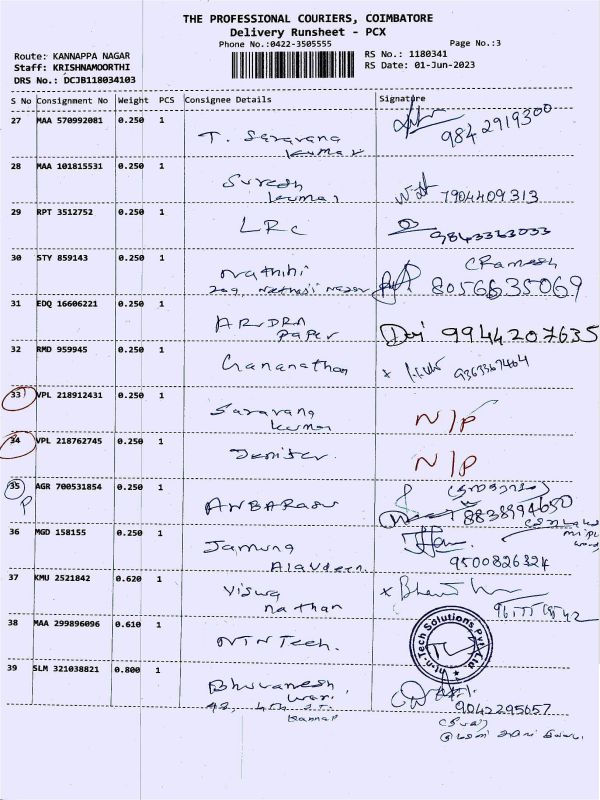 THE PROFESSIONAL COURIERS, COIMBATORE
Delivery Runsheet - PCX
Phone No.:0422-3505555
Page No.:3
Route: KANNAPPA NAGAR
Staff: KRISHNAMOORTHI
DRS No.: DCJB118034103
RS No.: 1180341
RS Date: 01-Jun-2023
S No Consignment No Weight PCS Consignee Details Signature
27 MAA 570992081 0.250 1
T. Saravana
kumar
9842919300
28 MAA 101815531 0.250 1
Suresh
kumar
7904409313
29 RPT 3512752 0.250 1
LRC
9843363033
30 STY 859143 0.250 1
Nathihi
C Ramesh
8056635069
31 EDQ 16606221 0.250 1
ARUDRA
Paper
9944207635
32 RMD 959945 0.250 1
Gananathan
9363367464
33 VPL 218912431 0.250 1
Saravana
kumar
N/P
34 VPL 218762745 0.250 1
Jenifer
N/P
35 AGR 700531854 0.250 1
P
ANBARASU
8838994650
36 MGD 158155 0.250 1
Jamuna
Alaudeen
9500826324
37 KMU 2521842 0.620 1
Viswa
nathan
38 MAA 299896096 0.610 1
NTN Tech.
39 SLM 321038821 0.800 1
Bhuvanesh
wari
9042295657